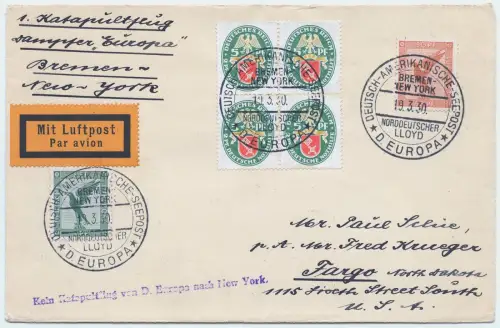 1. Katapultflug
Dampfer "Europa"
Bremen-
New-York
Mit Luftpost
Par avion
DEUTSCH-AMERIKANISCHE-SEEPOST
BREMEN-
NEW YORK
19.3.30.
NORDDEUTSCHER
LLOYD
* D. EUROPA *
DEUTSCH-AMERIKANISCHE-SEEPOST
BREMEN-
NEW YORK
19.3.30.
NORDDEUTSCHER
LLOYD
* D. EUROPA *
DEUTSCH-AMERIKANISCHE-SEEPOST
BREMEN-
NEW YORK
.3.30.
NORDDEUTSCHER
LLOYD
* D. EUROPA *
Mr. Paul
p. A. Mr. Fred Krueger
Fargo North Dakota
1115 Sixth Street South
U. S. A.
Kein Katapultflug von D. Europa nach New York.